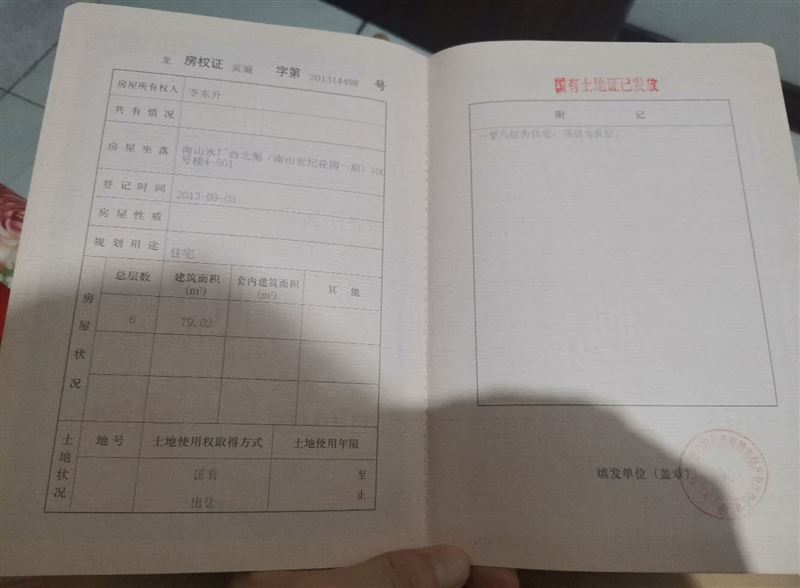 龙 房权证 黄城 字第 201314498 号
房屋所有权人 李东升
共有情况
房屋坐落 南山水厂西北侧(南山世纪花园一期)100号楼4-501
登记时间 2013-09-03
房屋性质
规划用途 住宅
房屋状况
总层数 建筑面积(m²) 套内建筑面积(m²) 其他
6 79.02
土地状况
地号 土地使用权取得方式 土地使用年限
国有 至
出让 止
国有土地证已发放
附记
一至六层为住宅,
填发单位(盖章)